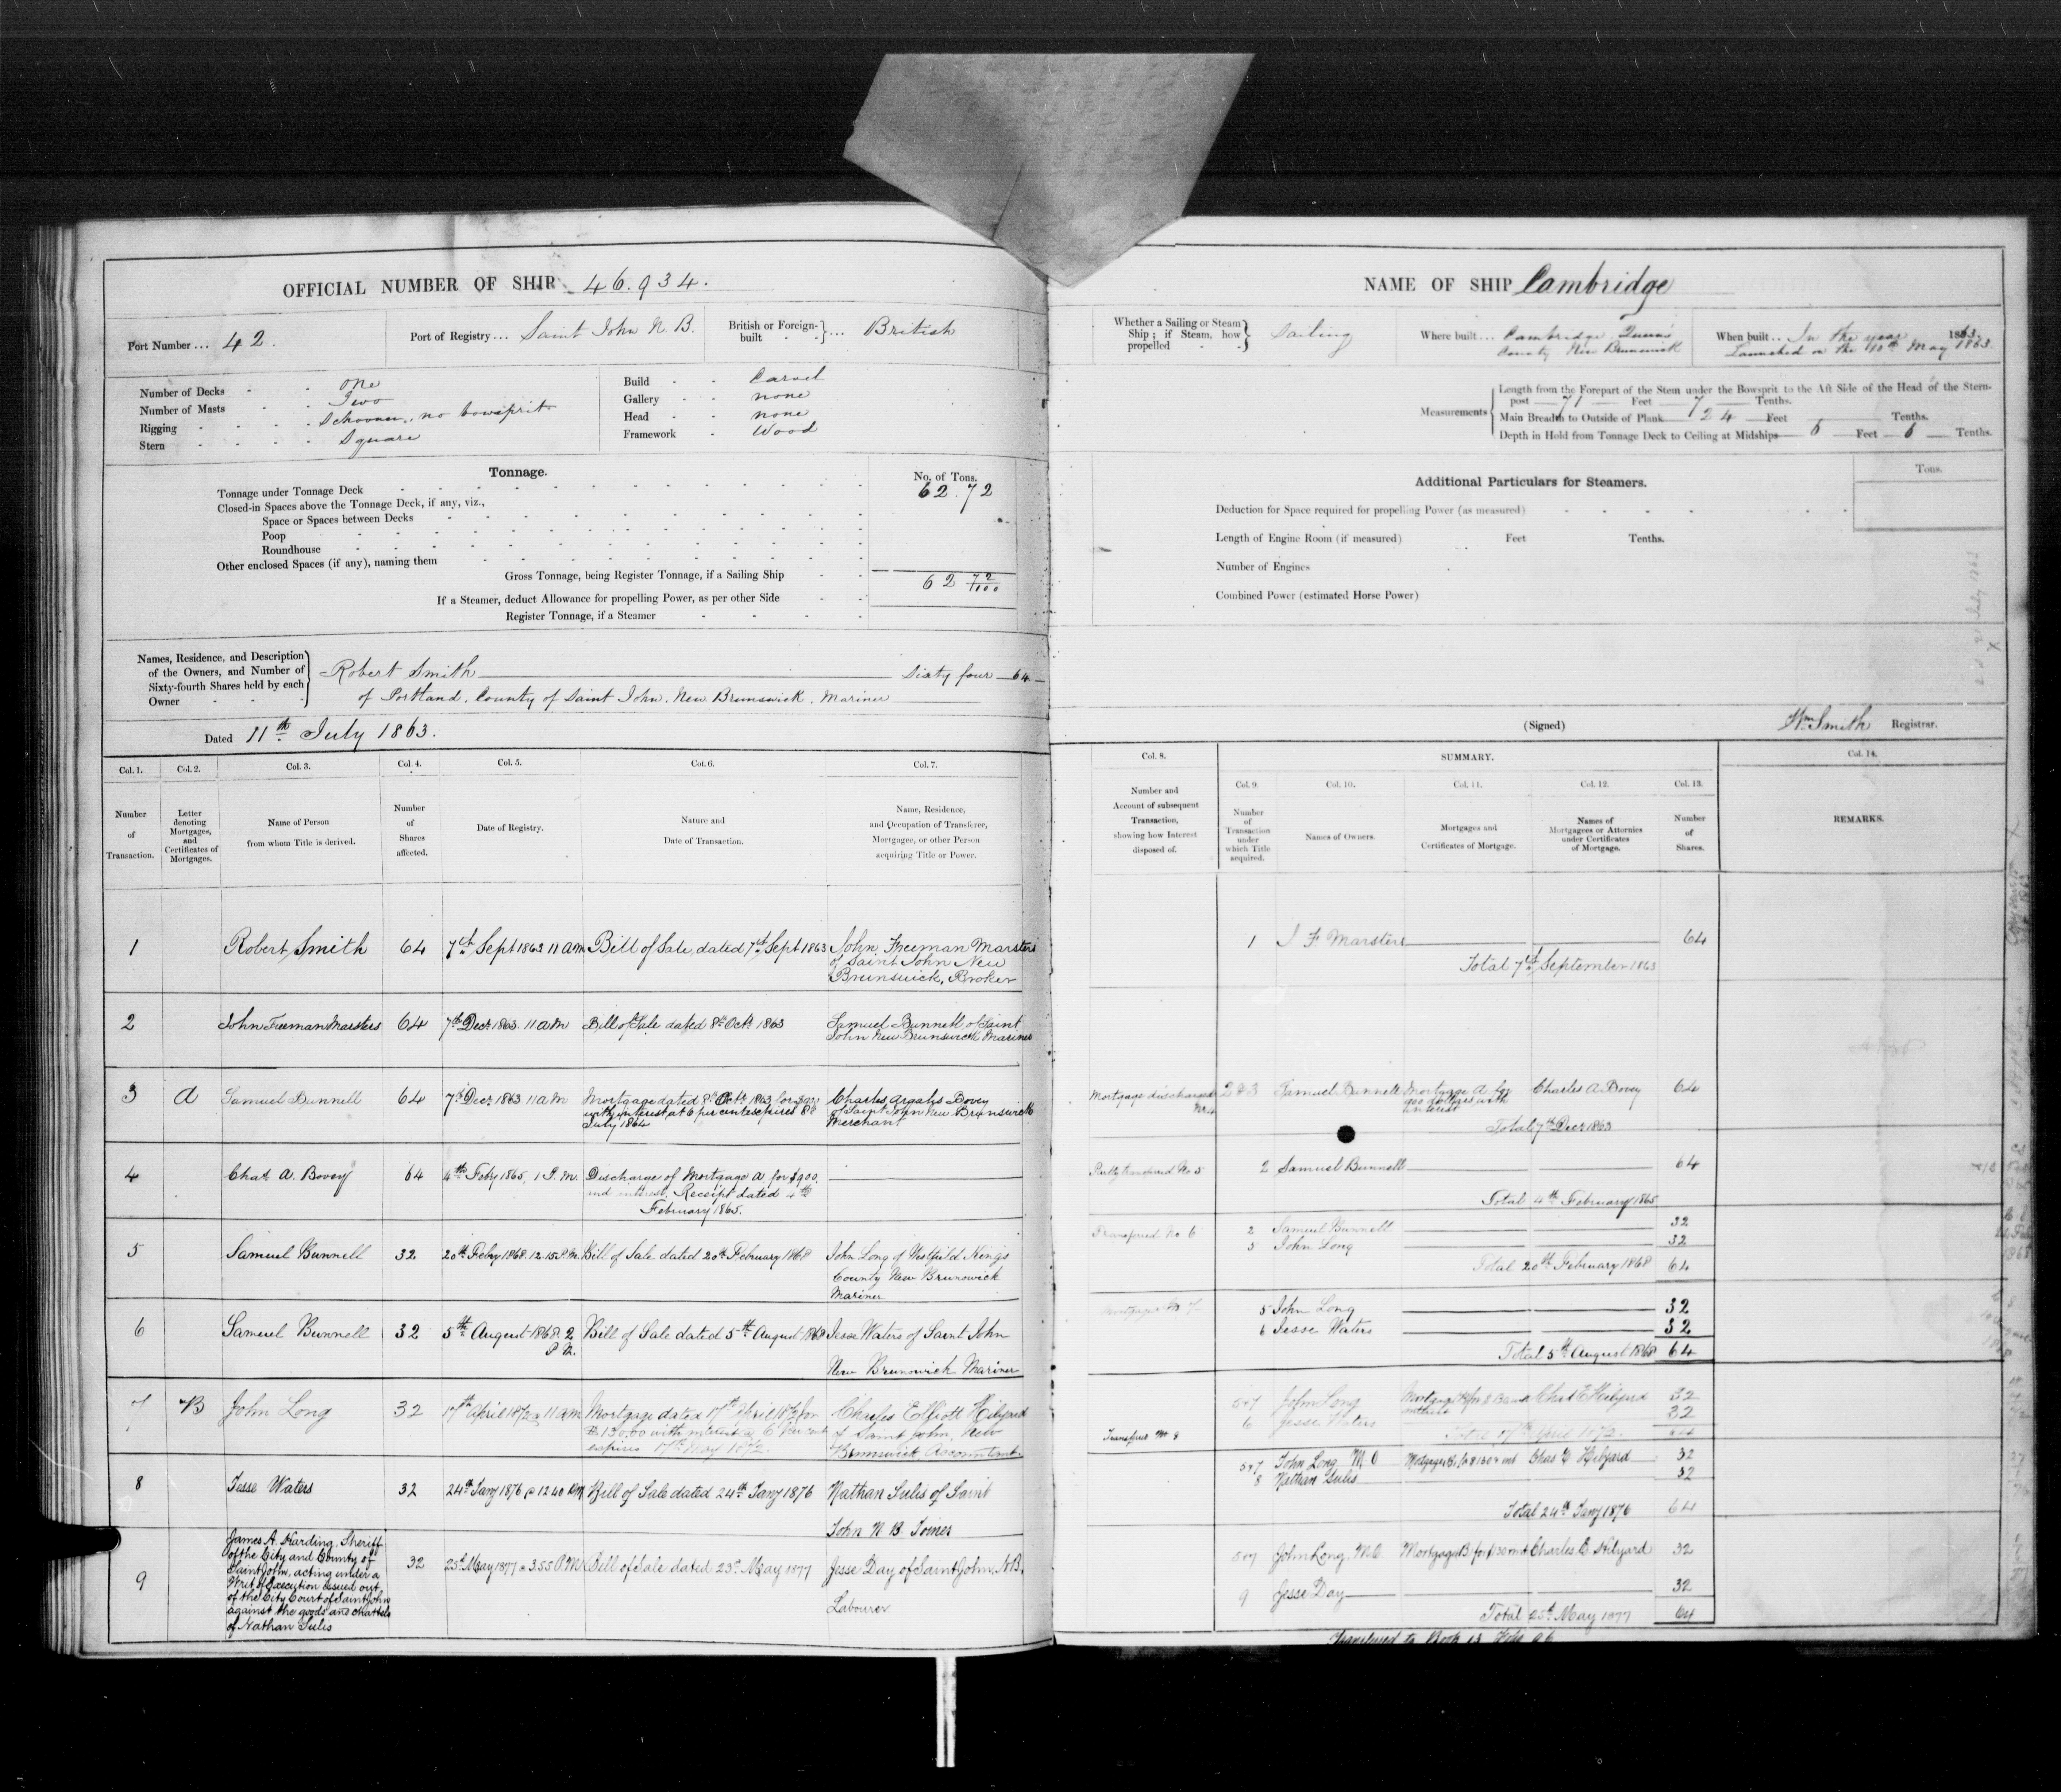 OFFICIAL NUMBER OF SHIP 46.934.
Port Number ... 42.
Port of Registry ... Saint John N. B.
British or Foreign-built ... British
Number of Decks - - one
Number of Masts - - Two
Rigging - - - Schooner, no bowsprit
Stern - - - - Square
Build - - Carvel
Gallery - - none
Head - - none
Framework - Wood
Tonnage.
No. of Tons.
Tonnage under Tonnage Deck 62.72
Closed-in Spaces above the Tonnage Deck, if any, viz.,
Space or Spaces between Decks
Poop
Roundhouse
Other enclosed Spaces (if any), naming them
Gross Tonnage, being Register Tonnage, if a Sailing Ship 62 72/100
If a Steamer, deduct Allowance for propelling Power, as per other Side
Register Tonnage, if a Steamer
Names, Residence, and Description
of the Owners, and Number of
Sixty-fourth Shares held by each
Owner
Robert Smith Sixty four 64
of Portland, County of Saint John, New Brunswick, Mariner
Dated 11th July 1863.
Col. 1. Col. 2. Col. 3. Col. 4. Col. 5. Col. 6. Col. 7.
Number of Transaction.
Letter denoting Mortgages, and Certificates of Mortgages.
Name of Person from whom Title is derived.
Number of Shares affected.
Date of Registry.
Nature and Date of Transaction.
Name, Residence, and Occupation of Transferee, Mortgagee, or other Person acquiring Title or Power.
1 Robert Smith 64 7th Sept 1863 11 am Bill of Sale dated 7th Sept 1863 John Freeman Marsters
of Saint John New
Brunswick, Broker
2 John Freeman Marsters 64 7th Decr 1863. 11 am Bill of Sale dated 8th Octr 1863 Samuel Bunnell of Saint
John New Brunswick Mariner
3 A Samuel Bunnell 64 7th Decr 1863 11 am Mortgage dated 8th Octr 1863 for $900 Charles Argalis Bovey
with interest at 6 per cent expires 8th of Saint John New Brunswick
July 1864 Merchant
4 Chas A. Bovey 64 4th Feby 1865, 1 P.M. Discharge of Mortgage A for $900
and interest, Receipt dated 4th
February 1865.
5 Samuel Bunnell 32 20th Feby 1868. 12.15 P.M. Bill of Sale dated 20th February 1868 John Long of Westfield Kings
County New Brunswick
Mariner
6 Samuel Bunnell 32 5th August 1868 2 P.M. Bill of Sale dated 5th August 1868 Jesse Waters of Saint John
New Brunswick Mariner
7 B John Long 32 17th April 1872 @ 11 am Mortgage dated 17th April 1872 for Charles Elliott Hilyard
$130.00 with interest @ 6 per cent of Saint John, New
expires 17th May 1872. Brunswick Accountant
8 Jesse Waters 32 24th Jany 1876 @ 12 40 PM Bill of Sale dated 24th Jany 1876 Nathan Sulis of Saint
John N. B. Joiner
9 James A. Harding, Sheriff
of the City and County of
Saint John, acting under a
Writ of Execution issued out
of the City Court of Saint John
against the goods and chattels
of Nathan Sulis
32 25th May 1877 @ 3.55 P.M Bill of Sale dated 23rd May 1877 Jesse Day of Saint John, N.B,
Labourer
NAME OF SHIP Cambridge
Whether a Sailing or Steam
Ship; if Steam, how
propelled
Sailing
Where built ... Cambridge, Queens
County New Brunswick
When built .. In the year 1863.
Launched on the 10th May 1863
Measurements
Length from the Forepart of the Stem under the Bowsprit to the Aft Side of the Head of the Stern-
post 71 Feet 7 Tenths.
Main Breadth to Outside of Plank 24 Feet Tenths.
Depth in Hold from Tonnage Deck to Ceiling at Midships 6 Feet 6 Tenths.
Additional Particulars for Steamers.
Tons.
Deduction for Space required for propelling Power (as measured)
Length of Engine Room (if measured) Feet Tenths.
Number of Engines
Combined Power (estimated Horse Power)
(Signed) Wm Smith Registrar.
Col. 8. SUMMARY. Col. 14.
Col. 9. Col. 10. Col. 11. Col. 12. Col. 13.
Number and Account of subsequent Transaction, showing how Interest disposed of.
Number of Transaction under which Title acquired.
Names of Owners.
Mortgages and Certificates of Mortgage.
Names of Mortgagees or Attornies under Certificates of Mortgage.
Number of Shares.
REMARKS.
1 J F Marsters 64
Total 7th September 1863
Mortgage discharged No 4 2 & 3 Samuel Bunnell Mortgage A for Charles A. Bovey 64
900 dollars with
interest
Total 7th Decr 1863
Partly transferred No 5 2 Samuel Bunnell 64
Total 4th February 1865
Transferred No 6 2 Samuel Bunnell 32
5 John Long 32
Total 20th February 1868 64
Mortgaged No 7 5 John Long 32
6 Jesse Waters 32
Total 5th August 1868 64
5&7 John Long Chas E Hilyard 32
6 Jesse Waters 32
Total 17th April 1872. 64
Transferred No 8
5&7 John Long M O Chas E Hilyard 32
8 Nathan Sulis 32
Total 24th Jany 1876 64
5&7 John Long, M.O Mortgage B for $130 & int Charles E Hilyard 32
9 Jesse Day 32
Total 25th May 1877 64
Transferred to Book 13 Folio 96